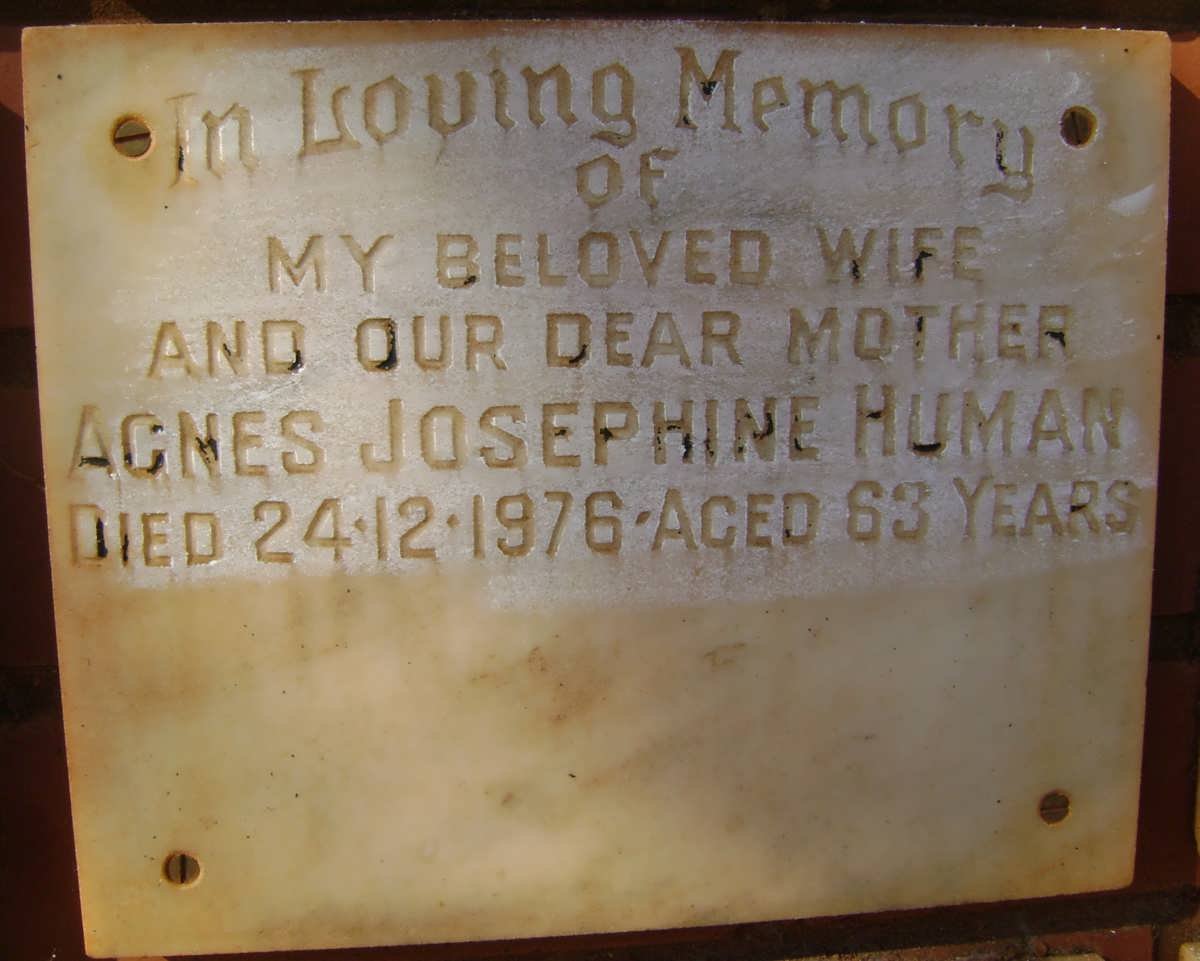 In Loving Memory
of
MY BELOVED WIFE
AND OUR DEAR MOTHER
AGNES JOSEPHINE HUMAN
DIED 24·12·1976·AGED 63 YEARS